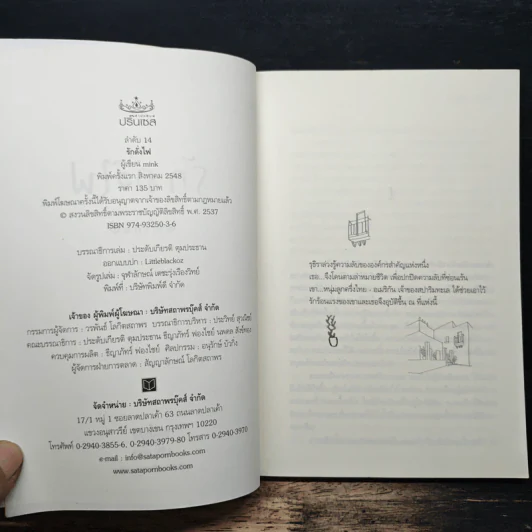 ปริ๊นเซส
ลำดับ 14
รักดั่งไฟ
ผู้เขียน mink
พิมพ์ครั้งแรก สิงหาคม 2548
ราคา 135 บาท
พิมพ์โฆษณาครั้งนี้ได้รับอนุญาตจากเจ้าของลิขสิทธิ์ตามกฎหมายแล้ว
© สงวนลิขสิทธิ์ตามพระราชบัญญัติลิขสิทธิ์ พ.ศ. 2537
ISBN 974-93250-3-6
บรรณาธิการเล่ม : ประดับเกียรติ ตุมประธาน
ออกแบบปก : Littleblackoz
จัดรูปเล่ม : จุฬาลักษณ์ เดชะรุ่งเรืองวิทย์
พิมพ์ที่ : บริษัทพิมพ์ดี จำกัด
เจ้าของ ผู้พิมพ์ผู้โฆษณา : บริษัทสถาพรบุ๊คส์ จำกัด
กรรมการผู้จัดการ : วรพันธ์ โลกิตสถาพร บรรณาธิการบริหาร : ประวิทย์ สุวณิชย์
คณะบรรณาธิการ : ประดับเกียรติ ตุมประธาน ธีญาภัทร์ ฟองไชย์ นพดล สังข์ทอง
ควบคุมการผลิต : ธีญาภัทร์ ฟองไชย์ ศิลปกรรม : อนุรักษ์ บัวกิ่ง
ผู้จัดการฝ่ายการตลาด : สัญญาลักษณ์ โลกิตสถาพร
จัดจำหน่าย : บริษัทสถาพรบุ๊คส์ จำกัด
17/1 หมู่ 1 ซอยลาดปลาเค้า 63 ถนนลาดปลาเค้า
แขวงอนุสาวรีย์ เขตบางเขน กรุงเทพฯ 10220
โทรศัพท์ 0-2940-3855-6, 0-2940-3979-80 โทรสาร 0-2940-3970
e-mail : info@satapornbooks.com
www.satapornbooks.com
รุธิราล่วงรู้ความลับขององค์กรสำคัญแห่งหนึ่ง
เธอ...จึงโดนตามล่าหมายชีวิต เพื่อปกปิดความลับที่ซ่อนเร้น
เขา...หนุ่มลูกครึ่งไทย - อเมริกัน เจ้าของสปาริมทะเล ได้ช่วยเธอไว้
รักร้อนแรงของเขาและเธอจึงอุบัติขึ้น ณ ที่แห่งนี้